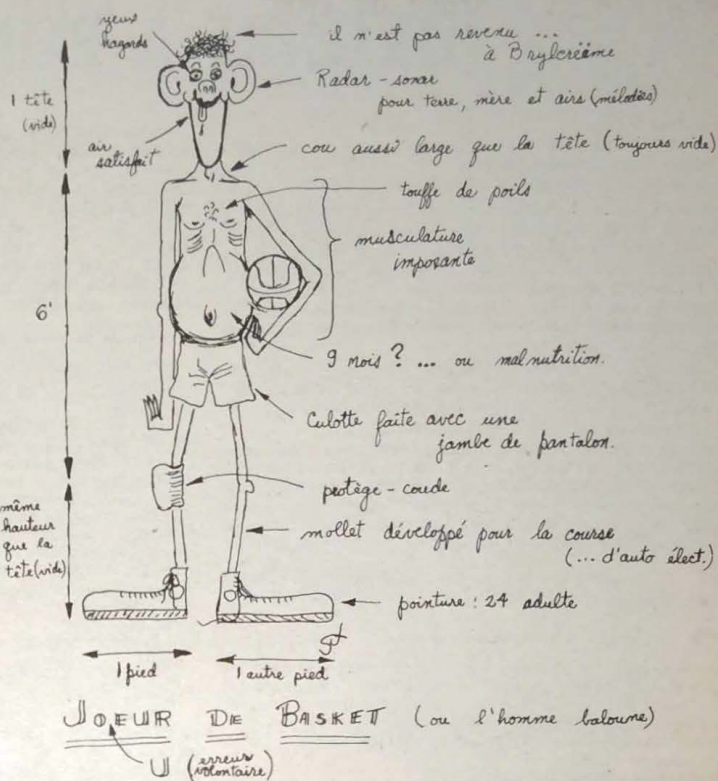 yeux
hagards
il n'est pas revenu ...
à Brylcrëëme
1 tête
(vide)
Radar - sonar
pour terre, mère et airs (mélodies)
air
satisfait
cou aussi large que la tête (toujours vide)
touffe de poils
musculature
imposante
6'
9 mois ? ... ou malnutrition.
Culotte faite avec une
jambe de pantalon.
protège - coude
même
hauteur
que la
tête (vide)
mollet développé pour la course
(... d'auto élect.)
pointure : 24 adulte
1 pied
1 autre pied
JOEUR DE BASKET (ou l'homme baloune)
U (erreur
volontaire)